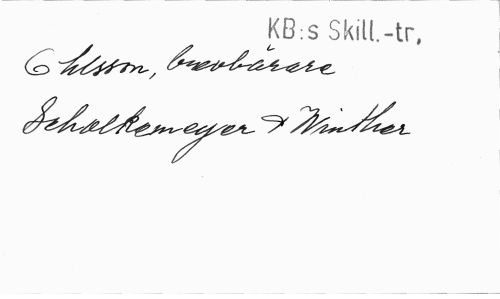 KB:s Skill.-tr.
Ohlsson, brevbärare
Schalkemeyer & Winther